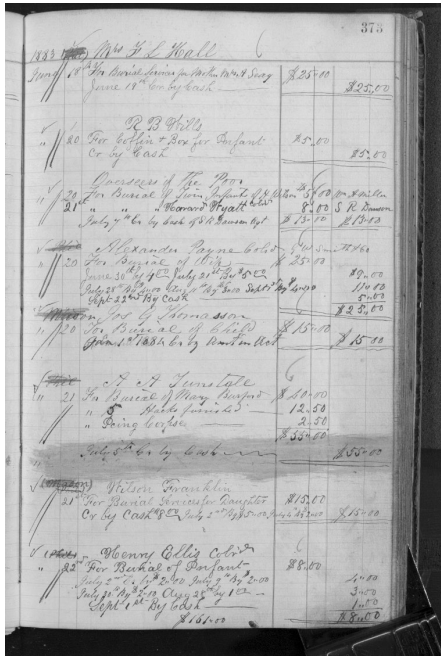 373
1883 Mrs F L Hall
June 18th For Burial Services for Mother Mrs A Seay $25.00
June 19th Cr by Cash $25.00
R B Wills
" 20 For Coffin & Box for Infant $5.00
Cr by Cash $5.00
Overseers of The Poor
" 20 For Burial of Twin Infants of H Wilson $5.00 Wm A Miller
21st " " " Howard Wyatt Cold 8.00 S R Dawson
July 7th Cr by Cash of S R Dawson Agt $13.00 $13.00
Alexander Payne Cold
" 20 For Burial of Wife $25.00
June 30th By 4.00 July 21st By $5.00 $9.00
July 28th By 4.00 Aug By 3.00 Sept By 4.00 11.00
Sept 22nd By Cash 5.00
$25.00
Jos G Thomasson
" 20 For Burial of Child $15.00
1st 1884 Cr by Amt on Act $15.00
A A Tunstale
" 21 For Burial of Mary Burford $40.00
" 5 Hacks furnished 12.50
" Icing Corpse 2.50
$55.00
July 5th Cr by Cash $55.00
Wilson Franklin
" 21st For Burial Services for Daughter $15.00
Cr by Cash $8.00 July 2nd By $5.00 2.00 $15.00
Henry Ellis Cold
" 22nd For Burial of Infant $8.00
July 2nd Cr By 2.00 July 9th By $2.00 4.00
July 30th By 2.00 Aug 28th by 1.00 3.00
Sept 1st By Cash 1.00
$161.00 $8.00